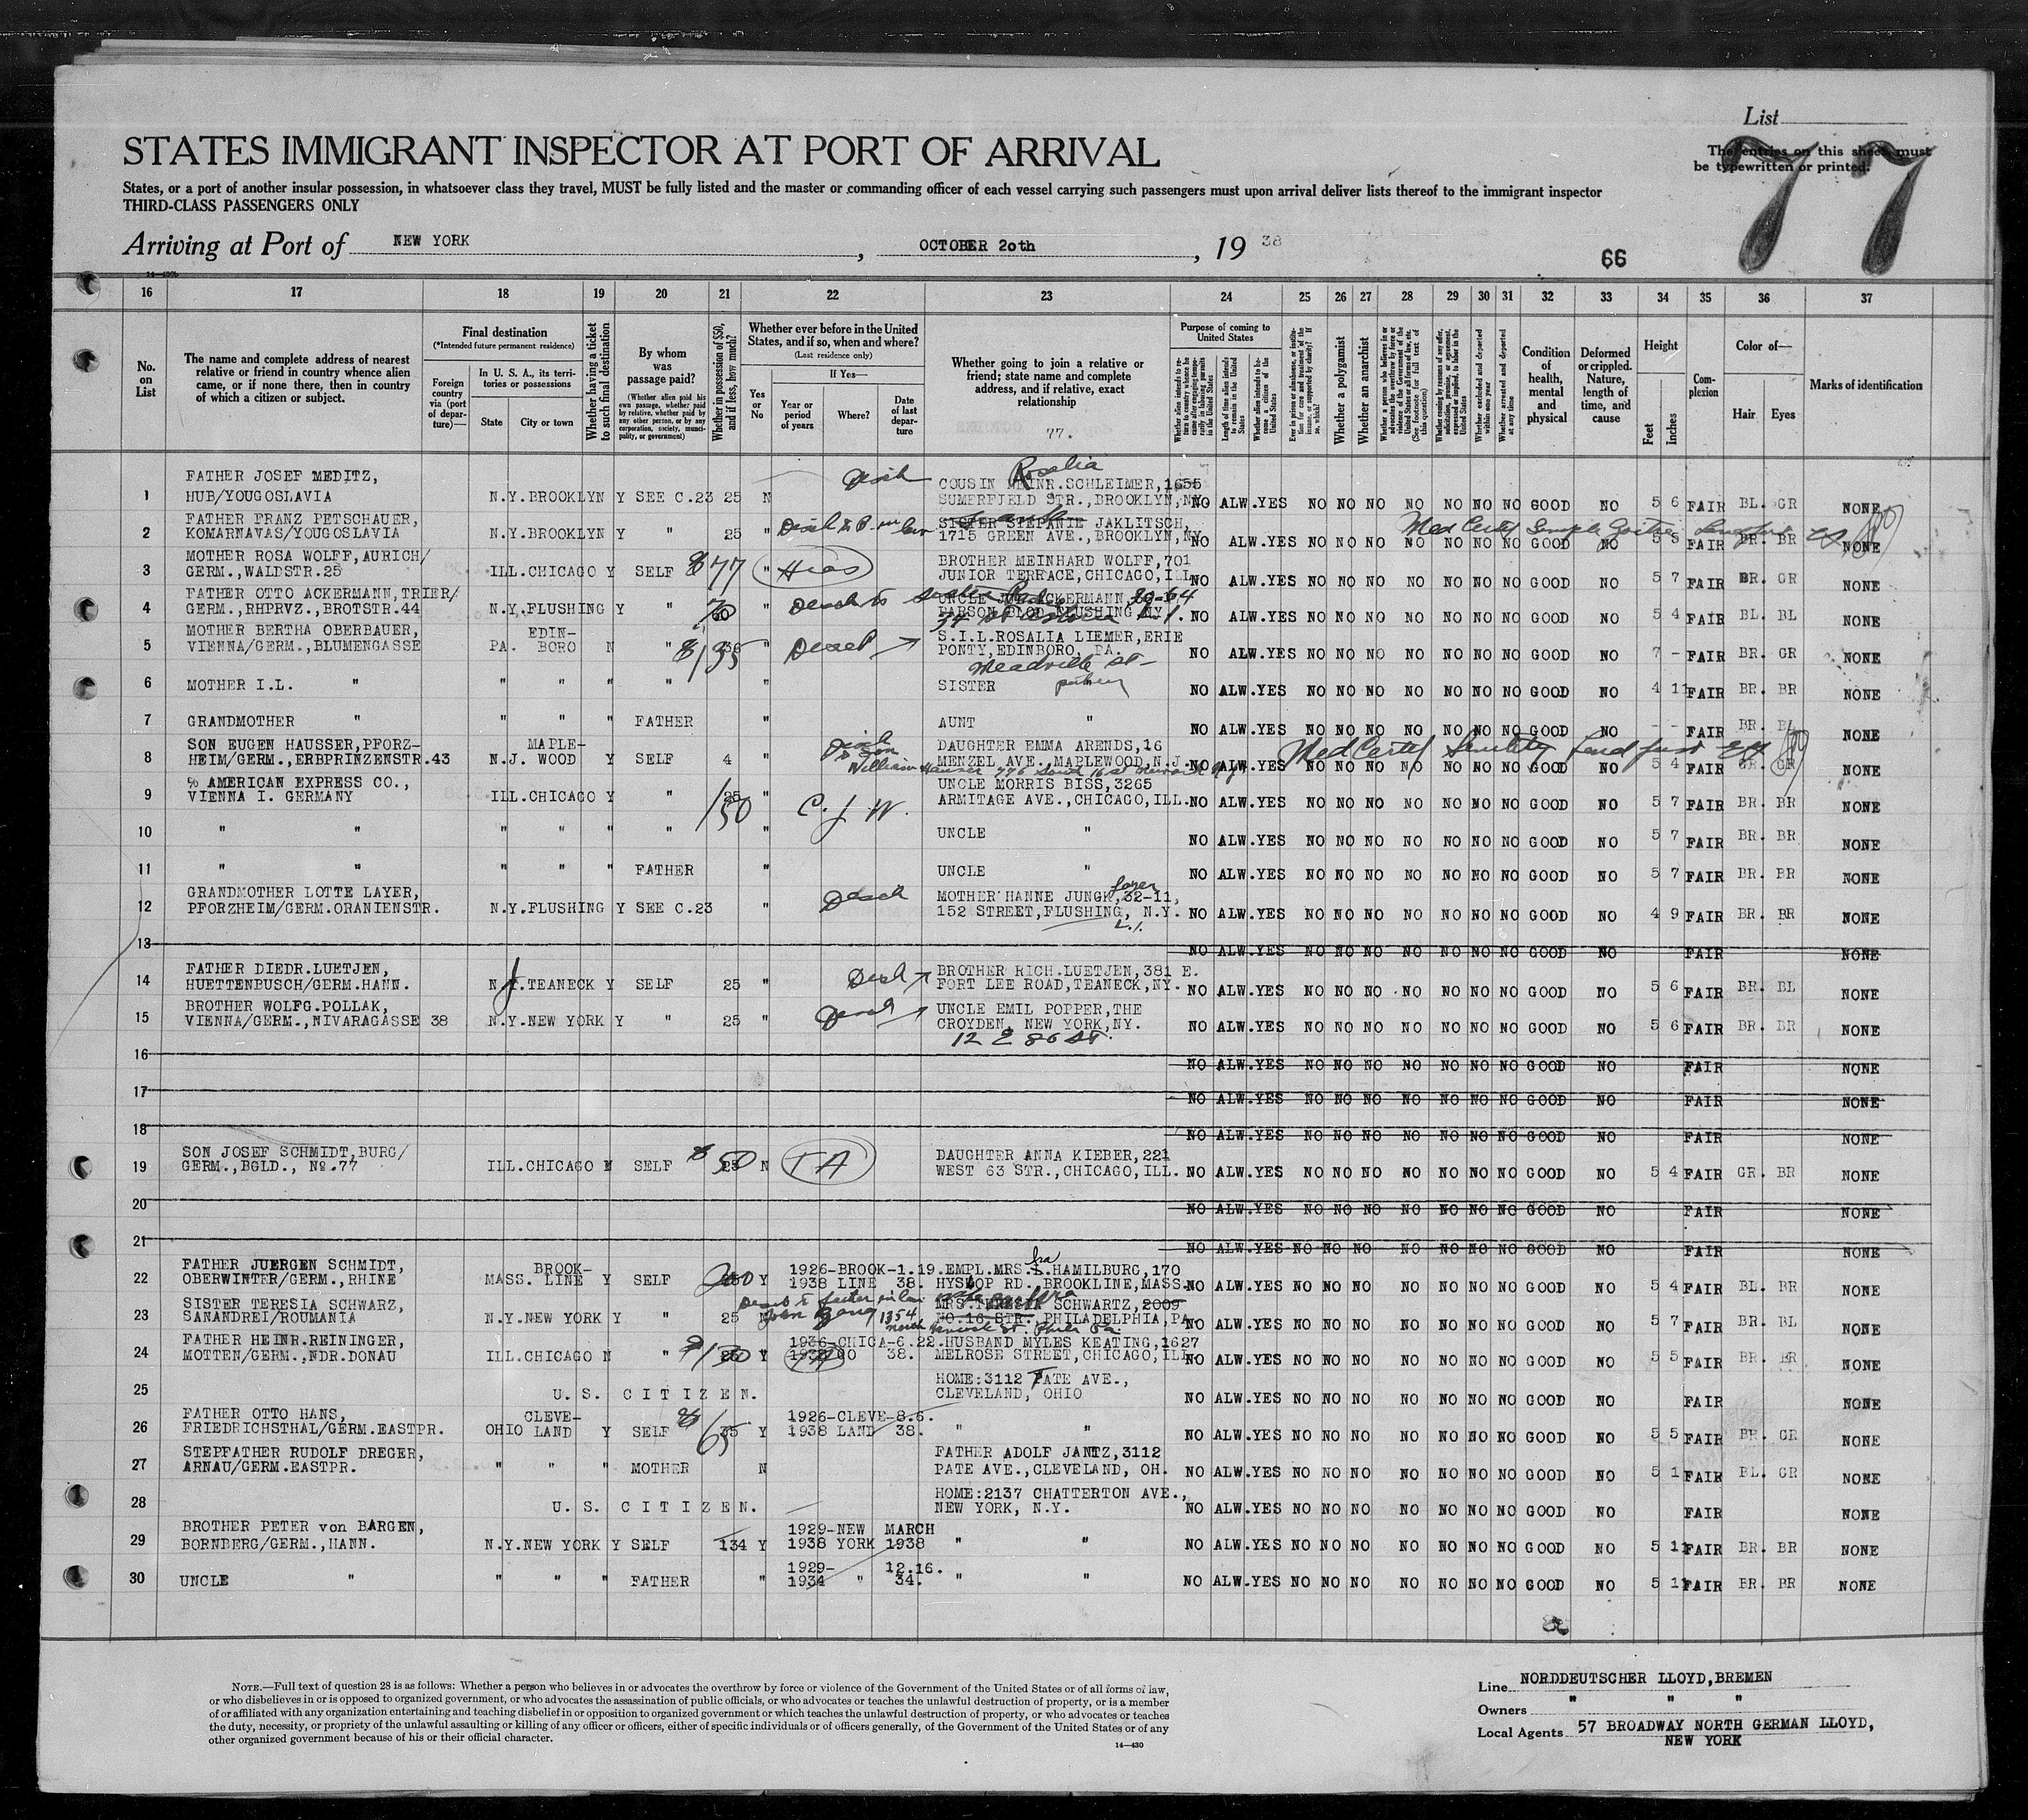 List
77
The entries on this sheet must
be typewritten or printed.
STATES IMMIGRANT INSPECTOR AT PORT OF ARRIVAL
States, or a port of another insular possession, in whatsoever class they travel, MUST be fully listed and the master or commanding officer of each vessel carrying such passengers must upon arrival deliver lists thereof to the immigrant inspector
THIRD-CLASS PASSENGERS ONLY
Arriving at Port of NEW YORK, OCTOBER 20th, 1938
66
16 17 18 19 20 21 22 23 24 25 26 27 28 29 30 31 32 33 34 35 36 37
No. on List
The name and complete address of nearest relative or friend in country whence alien came, or if none there, then in country of which a citizen or subject.
Final destination
(*Intended future permanent residence)
Foreign country via (port of departure)—
In U. S. A., its territories or possessions
State
City or town
Whether having a ticket to such final destination
By whom was passage paid?
(Whether alien paid his own passage, whether paid by relative, whether paid by any other person, or by any corporation, society, municipality, or government)
Whether in possession of $50, and if less, how much?
Whether ever before in the United States, and if so, when and where?
(Last residence only)
Yes or No
If Yes—
Year or period of years
Where?
Date of last departure
Whether going to join a relative or friend; state name and complete address, and if relative, exact relationship
77.
Purpose of coming to United States
Length of time alien intends to remain in the United States
Whether alien intends to become a citizen of the United States
Whether a polygamist
Whether an anarchist
Whether excluded and deported within one year
Whether arrested and deported at any time
Condition of health, mental and physical
Deformed or crippled. Nature, length of time, and cause
Height
Feet
Inches
Complexion
Color of—
Hair
Eyes
Marks of identification
FATHER JOSEF MEDITZ, Rosalia
1 HUB/YOUGOSLAVIA N.Y. BROOKLYN Y SEE C.23 25 N COUSIN HEINR.SCHLEIMER,1655
SUMERFJELD STR.,BROOKLYN,NY NO ALW.YES NO NO NO NO NO NO NO GOOD NO 5 6 FAIR BL. GR NONE
FATHER FRANZ PETSCHAUER, SISTER STEFANIE JAKLITSCH,
2 KOMARNAVAS/YOUGOSLAVIA N.Y. BROOKLYN Y " 25 " 1715 GREEN AVE.,BROOKLYN,NY NO ALW.YES NO NO NO NO NO NO NO GOOD NO 5 5 FAIR BR. BR NONE
Med Certf
MOTHER ROSA WOLFF,AURICH/ BROTHER MEINHARD WOLFF,701
3 GERM.,WALDSTR.25 ILL. CHICAGO Y SELF $77 " Hias JUNIOR TERRACE,CHICAGO,ILL NO ALW.YES NO NO NO NO NO NO NO GOOD NO 5 7 FAIR BR. GR NONE
FATHER OTTO ACKERMANN,TRIER/
4 GERM.,RHPRVZ.,BROTSTR.44 N.Y. FLUSHING Y " " NO ALW.YES NO NO NO NO NO NO NO GOOD NO 5 4 FAIR BL. BL NONE
MOTHER BERTHA OBERBAUER, EDIN- S.I.L.ROSALIA LIEMER,ERIE
5 VIENNA/GERM.,BLUMENGASSE PA. BORO N " $135 " PONTY,EDINBORO, PA. NO ALW.YES NO NO NO NO NO NO NO GOOD NO 7 - FAIR BR. GR NONE
Meadville st-
6 MOTHER I.L. " " " " " " SISTER NO ALW.YES NO NO NO NO NO NO NO GOOD NO 4 11 FAIR BR. BR NONE
7 GRANDMOTHER " " " " FATHER " AUNT " NO ALW.YES NO NO NO NO NO NO NO GOOD NO - - FAIR BR. BL NONE
SON EUGEN HAUSSER,PFORZ- MAPLE- DAUGHTER EMMA ARENDS,16
8 HEIM/GERM.,ERBPRINZENSTR.43 N.J. WOOD Y SELF 4 " MENZEL AVE. MAPLEWOOD,N.J. NO ALW.YES NO NO NO NO NO NO NO GOOD NO 5 4 FAIR GR. GR NONE
Med Certf Senility
% AMERICAN EXPRESS CO., UNCLE MORRIS BISS,3265
9 VIENNA I. GERMANY ILL. CHICAGO Y " 150 " C. J. W. ARMITAGE AVE.,CHICAGO,ILL. NO ALW.YES NO NO NO NO NO NO NO GOOD NO 5 7 FAIR BR. BR NONE
10 " " " " " " " UNCLE " NO ALW.YES NO NO NO NO NO NO NO GOOD NO 5 7 FAIR BR. BR NONE
11 " " " " " FATHER " UNCLE " NO ALW.YES NO NO NO NO NO NO NO GOOD NO 5 7 FAIR BR. BR NONE
GRANDMOTHER LOTTE LAYER, MOTHER HANNE JUNGK,32-11,
12 PFORZHEIM/GERM.ORANIENSTR. N.Y. FLUSHING Y SEE C.23 " 152 STREET,FLUSHING, N.Y. NO ALW.YES NO NO NO NO NO NO NO GOOD NO 4 9 FAIR BR. BR NONE
L.I.
13 NO ALW.YES NO NO NO NO NO NO NO GOOD NO FAIR NONE
FATHER DIEDR.LUETJEN, BROTHER RICH.LUETJEN,381 E.
14 HUETTENBUSCH/GERM.HANN. N.J. TEANECK Y SELF 25 " FORT LEE ROAD,TEANECK,NY. NO ALW.YES NO NO NO NO NO NO NO GOOD NO 5 6 FAIR BR. BL NONE
BROTHER WOLFG.POLLAK, UNCLE EMIL POPPER,THE
15 VIENNA/GERM.,NIVARAGASSE 38 N.Y. NEW YORK Y " 25 " CROYDEN, NEW YORK,NY. NO ALW.YES NO NO NO NO NO NO NO GOOD NO 5 6 FAIR BR. BR NONE
12 E 86 ST.
16 NO ALW.YES NO NO NO NO NO NO NO GOOD NO FAIR NONE
17 NO ALW.YES NO NO NO NO NO NO NO GOOD NO FAIR NONE
18 NO ALW.YES NO NO NO NO NO NO NO GOOD NO FAIR NONE
SON JOSEF SCHMIDT,BURG/ DAUGHTER ANNA KIEBER,221
19 GERM.,BGLD., No.77 ILL. CHICAGO N SELF $50 N TA WEST 63 STR.,CHICAGO,ILL. NO ALW.YES NO NO NO NO NO NO NO GOOD NO 5 4 FAIR GR. BR NONE
20 NO ALW.YES NO NO NO NO NO NO NO GOOD NO FAIR NONE
21 NO ALW.YES NO NO NO NO NO NO NO GOOD NO FAIR NONE
FATHER JUERGEN SCHMIDT, BROOK- 1926-BROOK-1.19. EMPL.MRS. Ira HAMILBURG,170
22 OBERWINTER/GERM.,RHINE MASS. LINE Y SELF 200 Y 1938 LINE 38. HYSLOP RD.,BROOKLINE,MASS. NO ALW.YES NO NO NO NO NO NO NO GOOD NO 5 4 FAIR BL. BR NONE
SISTER TERESIA SCHWARZ, SCHWARTZ,2009
23 SANANDREI/ROUMANIA N.Y. NEW YORK Y " 25 NO.16 STR. PHILADELPHIA,PA NO ALW.YES NO NO NO NO NO NO NO GOOD NO 5 7 FAIR BR. BL NONE
FATHER HEINR.REININGER, 1936-CHICA-6.22. HUSBAND MYLES KEATING,1627
24 MOTTEN/GERM.,NDR.DONAU ILL. CHICAGO N " $130 Y 38. MELROSE STREET,CHICAGO,ILL NO ALW.YES NO NO NO NO NO NO NO GOOD NO 5 5 FAIR BR. BR NONE
HOME:3112 PATE AVE.,
25 U. S. CITIZEN. CLEVELAND, OHIO NO ALW.YES NO NO NO NO NO NO NO GOOD NO FAIR NONE
FATHER OTTO HANS, CLEVE- 1926-CLEVE-8.6.
26 FRIEDRICHSTHAL/GERM.EASTPR. OHIO LAND Y SELF $65 Y 1938 LAND 38. " " NO ALW.YES NO NO NO NO NO NO NO GOOD NO 5 5 FAIR BR. GR NONE
STEPFATHER RUDOLF DREGER, FATHER ADOLF JANTZ,3112
27 ARNAU/GERM.EASTPR. " " " MOTHER N PATE AVE.,CLEVELAND, OH. NO ALW.YES NO NO NO NO NO NO NO GOOD NO 5 1 FAIR BL. GR NONE
HOME:2137 CHATTERTON AVE.,
28 U. S. CITIZEN. NEW YORK, N.Y. NO ALW.YES NO NO NO NO NO NO NO GOOD NO FAIR NONE
BROTHER PETER von BARGEN, 1929-NEW MARCH
29 BORNBERG/GERM.,HANN. N.Y. NEW YORK Y SELF 134 Y 1938 YORK 1938 " " NO ALW.YES NO NO NO NO NO NO NO GOOD NO 5 11 FAIR BR. BR NONE
1929- 12.16.
30 UNCLE " " " " FATHER " 1934 " 34. " " NO ALW.YES NO NO NO NO NO NO NO GOOD NO 5 11 FAIR BR. BR NONE
NOTE.—Full text of question 28 is as follows: Whether a person who believes in or advocates the overthrow by force or violence of the Government of the United States or of all forms of law,
or who disbelieves in or is opposed to organized government, or who advocates the assassination of public officials, or who advocates or teaches the unlawful destruction of property, or is a member
of or affiliated with any organization entertaining and teaching disbelief in or opposition to organized government or which teaches the unlawful destruction of property, or who advocates or teaches
the duty, necessity, or propriety of the unlawful assaulting or killing of any officer or officers, either of specific individuals or of officers generally, of the Government of the United States or of any
other organized government because of his or their official character.
14—430
Line NORDDEUTSCHER LLOYD,BREMEN
Owners " " "
Local Agents 57 BROADWAY NORTH GERMAN LLOYD,
NEW YORK